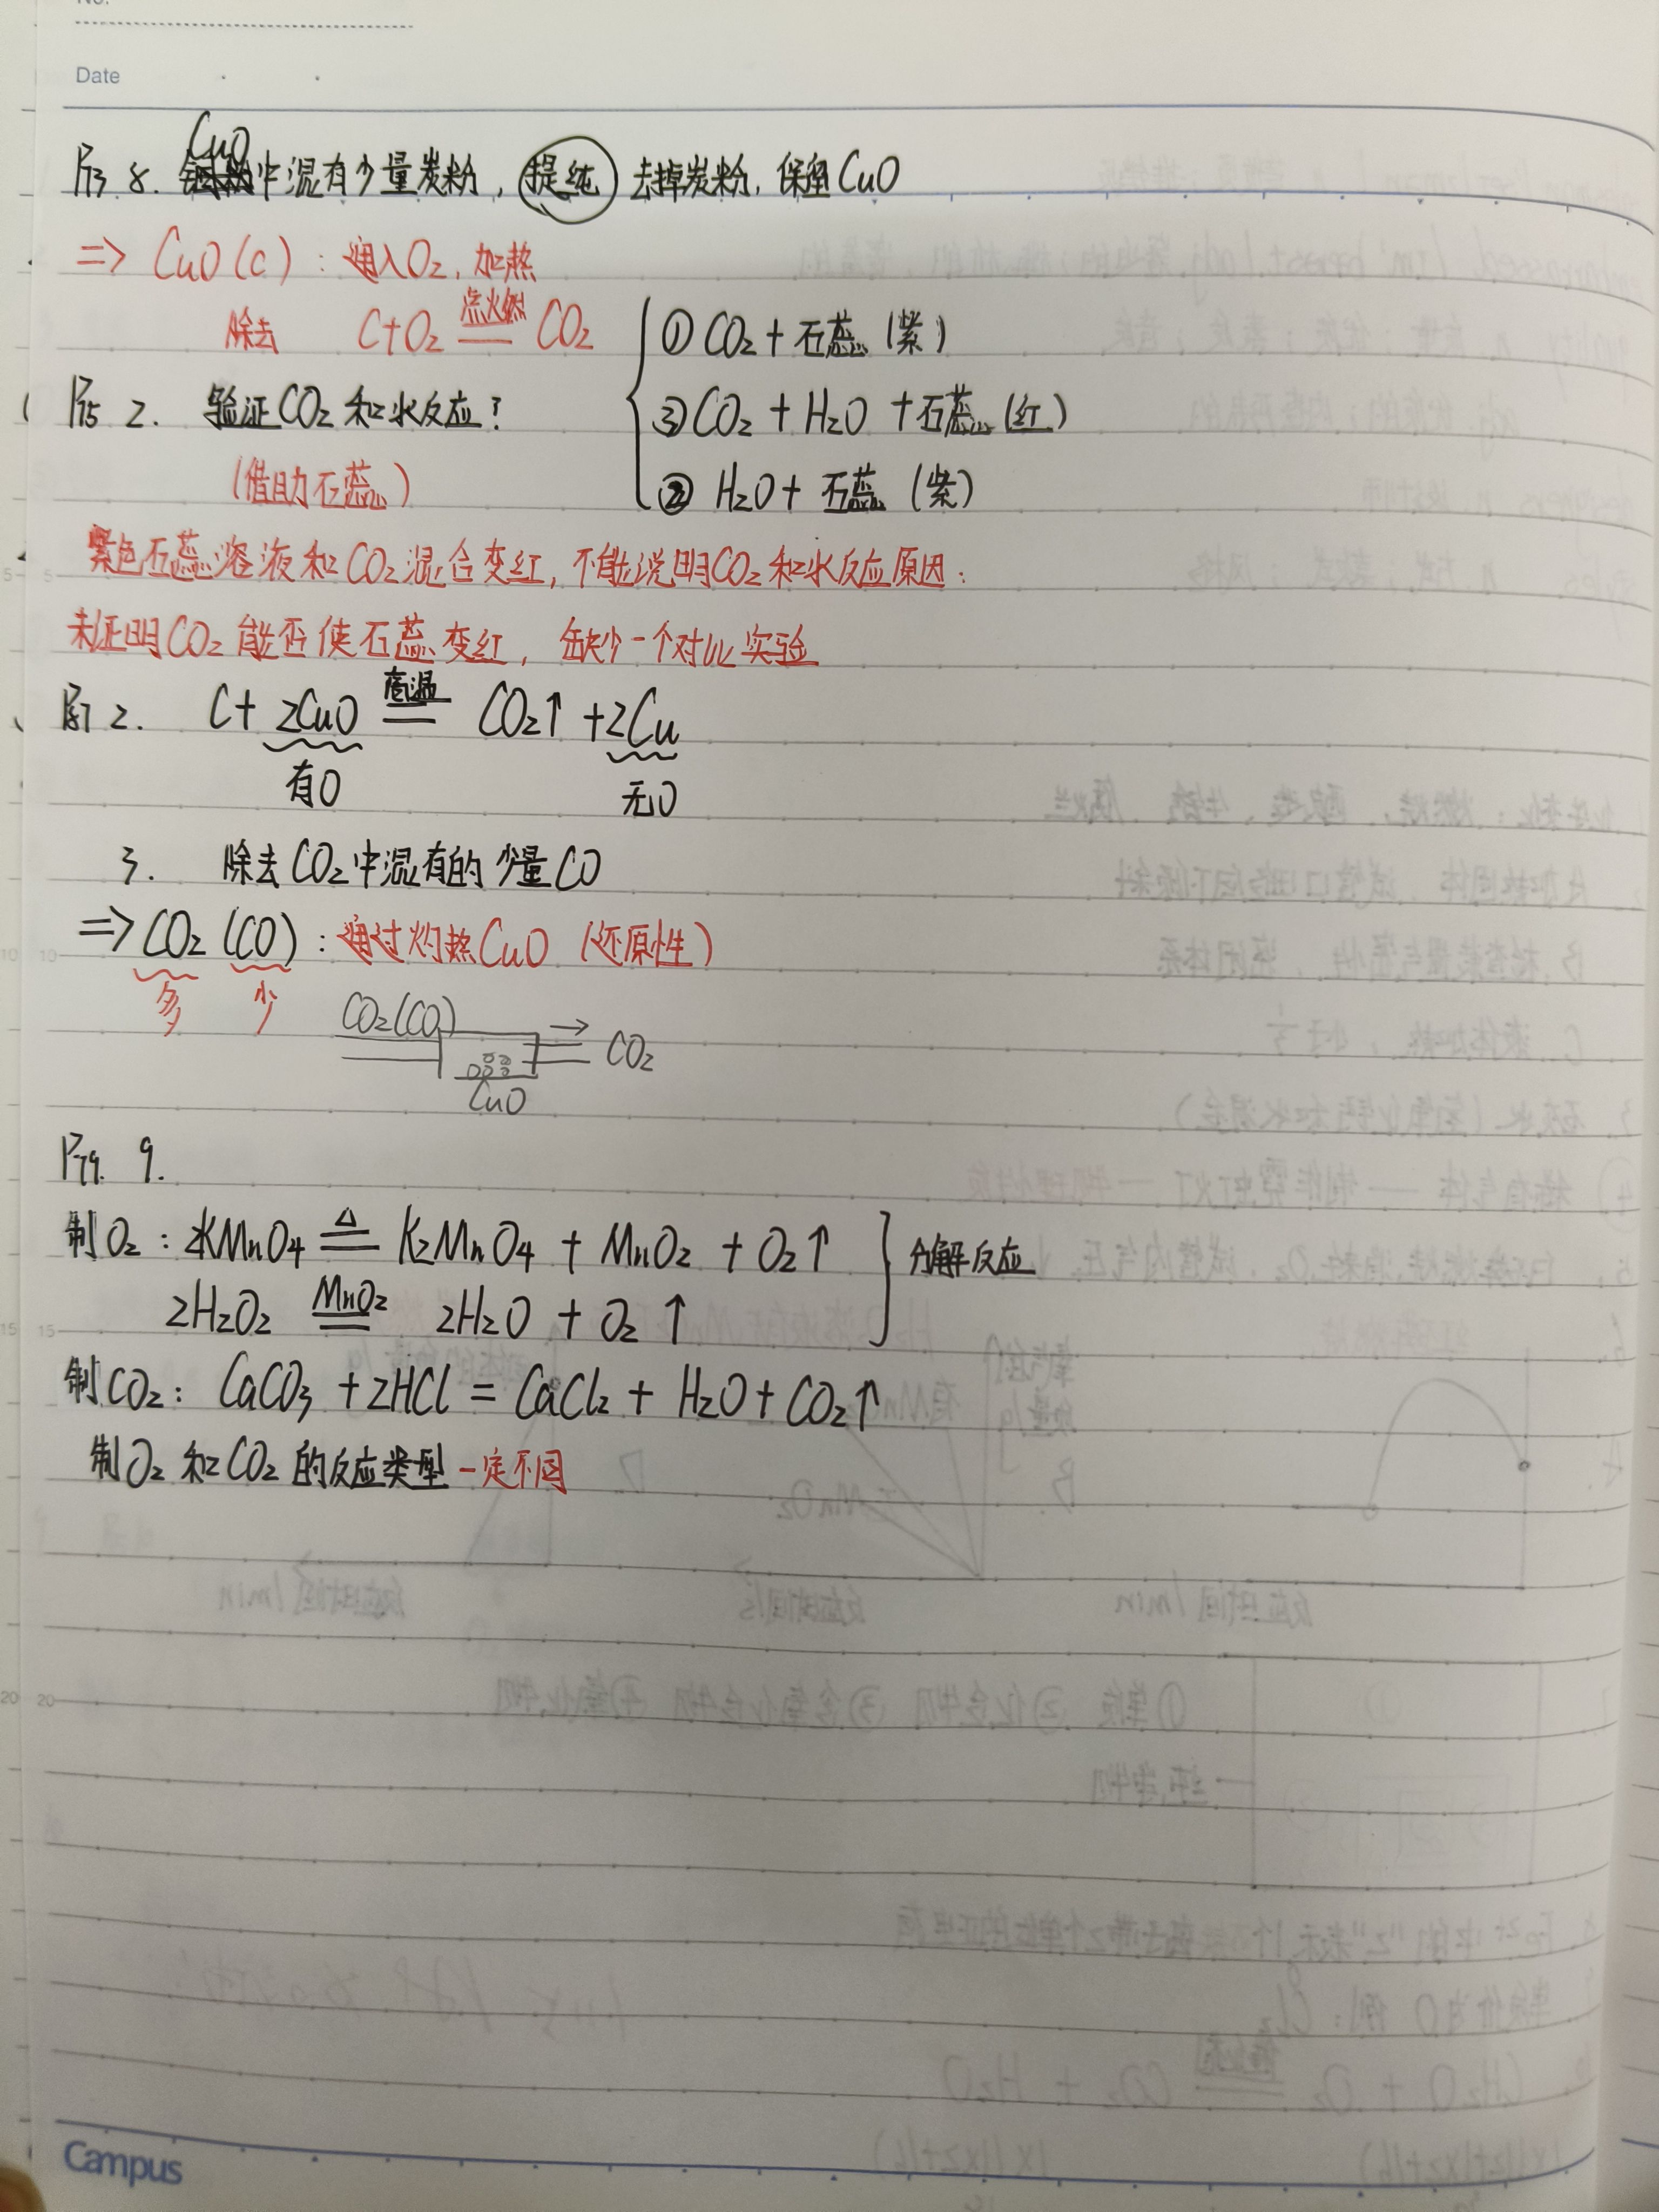 No.
Date
P73 8. CuO中混有少量炭粉，提纯 去掉炭粉，保留CuO
=> CuO(C)：通入O₂，加热
除去 C+O₂ 点燃== CO₂
P75 2. 验证CO₂和水反应？
(借助石蕊)
① CO₂ + 石蕊 (紫)
③ CO₂ + H₂O + 石蕊 (红)
② H₂O + 石蕊 (紫)
紫色石蕊溶液和CO₂混合变红，不能说明CO₂和水反应原因：
未证明CO₂能否使石蕊变红，缺少一个对比实验
2. C + 2CuO 高温== CO₂↑ + 2Cu
有O 无O
3. 除去CO₂中混有的少量CO
=> CO₂ (CO)：通过灼热CuO (还原性)
多 少
CO₂(CO) → CO₂
CuO
P79. 9.
制O₂：2KMnO₄ △== K₂MnO₄ + MnO₂ + O₂↑
2H₂O₂ MnO₂== 2H₂O + O₂↑
分解反应
制CO₂：CaCO₃ + 2HCl = CaCl₂ + H₂O + CO₂↑
制O₂和CO₂的反应类型一定不同
5
10
15
20
Campus